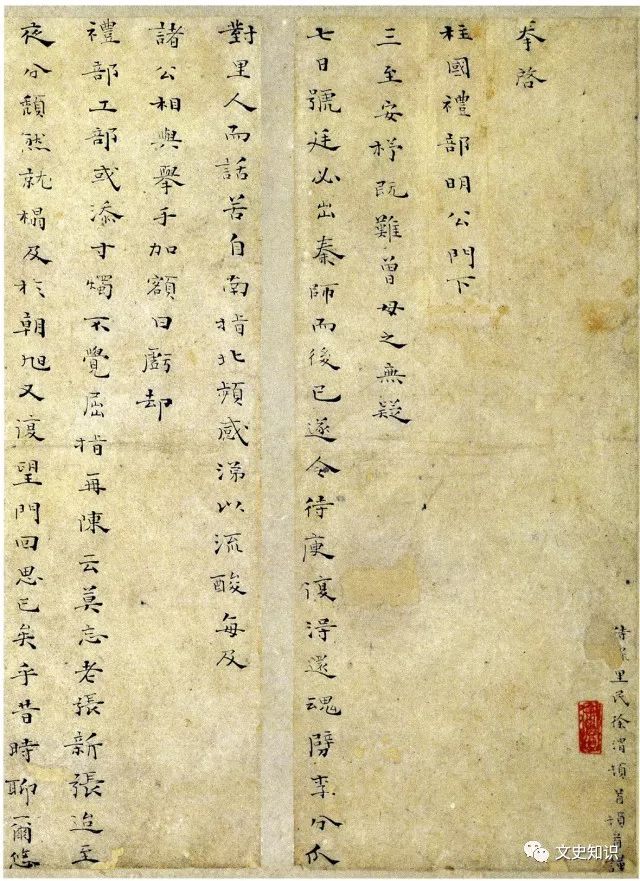 待罪里民徐渭頓首頓首謹
奉啓
柱國禮部明公門下
三至安杼既難曾母之無疑
七日號廷必出秦師而後已遂令待庾復得還魂劈李分瓜
對里人而話苦自南指北頻感涕以流酸每及
諸公相與舉手加額曰虧却
禮部工部或添寸燭不覺屈指再陳云莫忘老張新張迨至
夜分頹然就榻及於朝旭又復望門回思已矣乎昔時聊爾悠
文史知识